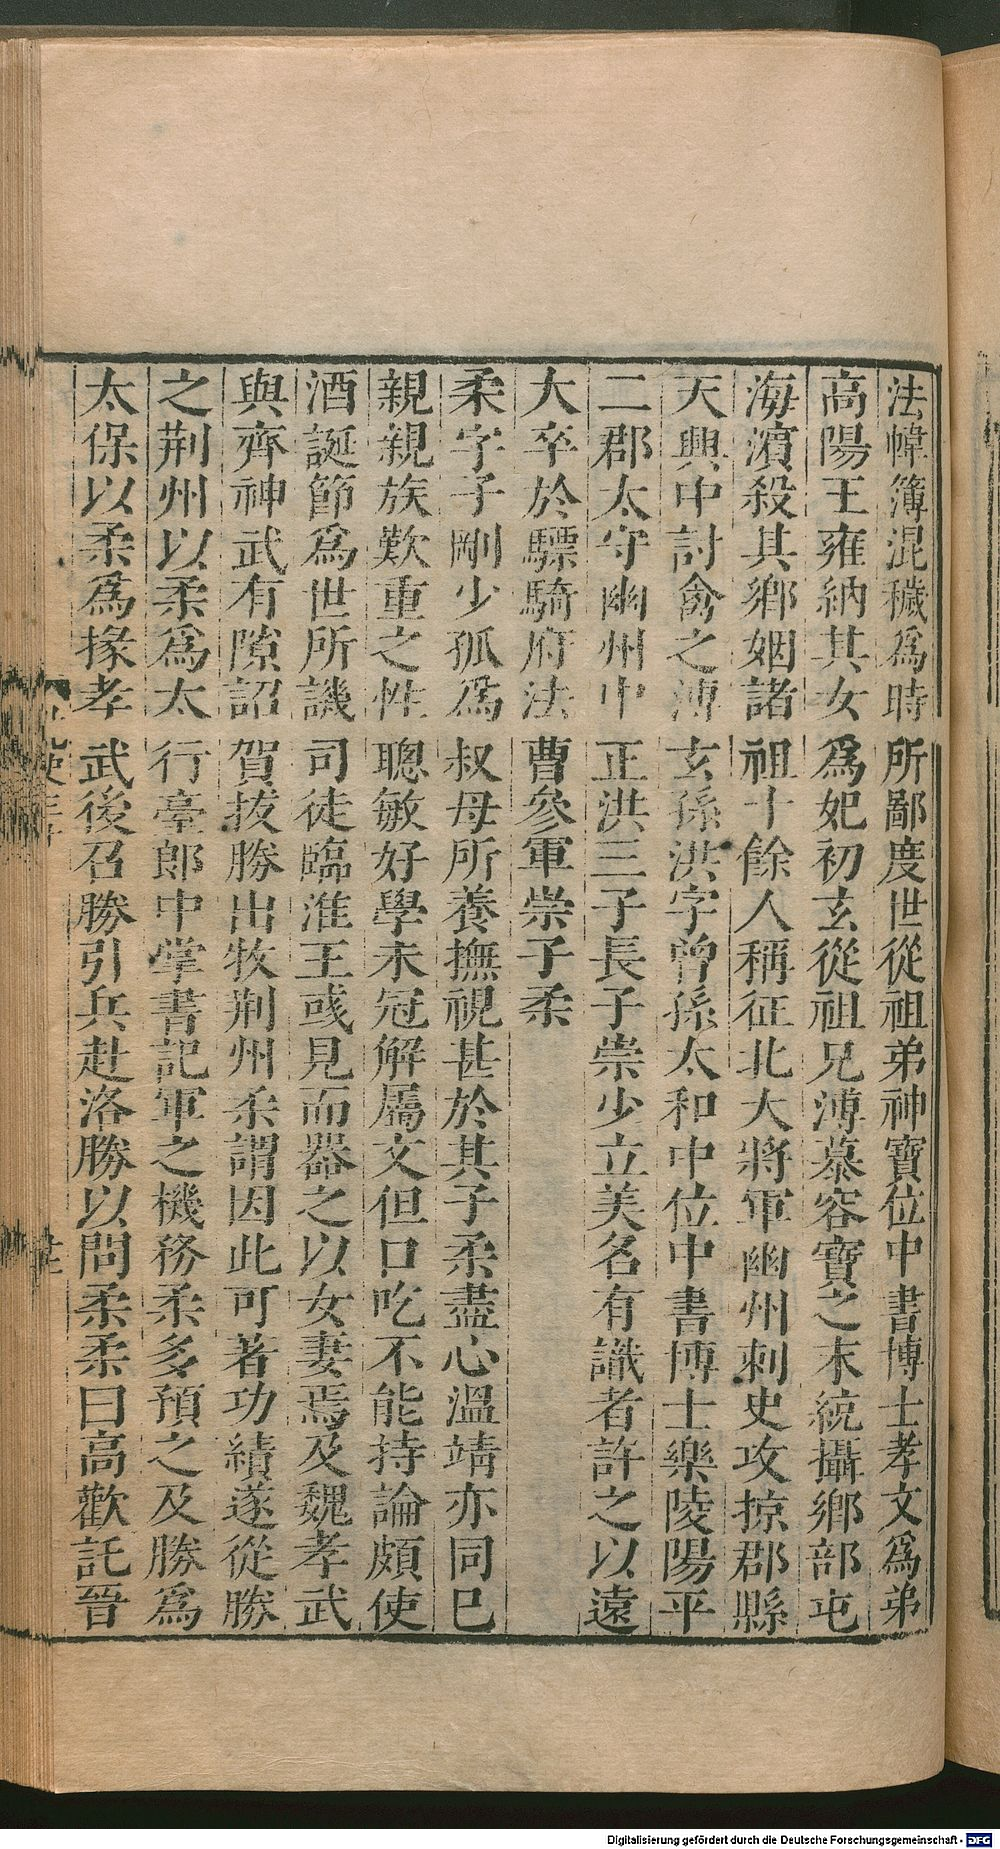 法幃簿混穢爲時所鄙度世從祖弟神寶位中書博士孝文爲弟
高陽王雍納其女爲妃初玄從祖兄溥慕容寶之末統攝鄉部屯
海濱殺其鄉姻諸祖十餘人稱征北大將軍幽州刺史攻掠郡縣
天興中討禽之溥玄孫洪字曾孫太和中位中書博士樂陵陽平
二郡太守幽州中正洪三子長子崇少立美名有識者許之以遠
大卒於驃騎府法曹參軍崇子柔
柔字子剛少孤爲叔母所養撫視甚於其子柔盡心溫靖亦同巳
親親族歎重之性聰敏好學未冠解屬文但口吃不能持論頗使
酒誕節爲世所譏司徒臨淮王彧見而器之以女妻焉及魏孝武
與齊神武有隙詔賀拔勝出牧荆州柔謂因此可著功績遂從勝
之荆州以柔爲太行臺郎中掌書記軍之機務柔多預之及勝爲
太保以柔爲掾孝武後召勝引兵赴洛勝以問柔柔曰高歡託晉
Digitalisierung gefördert durch die Deutsche Forschungsgemeinschaft - DFG